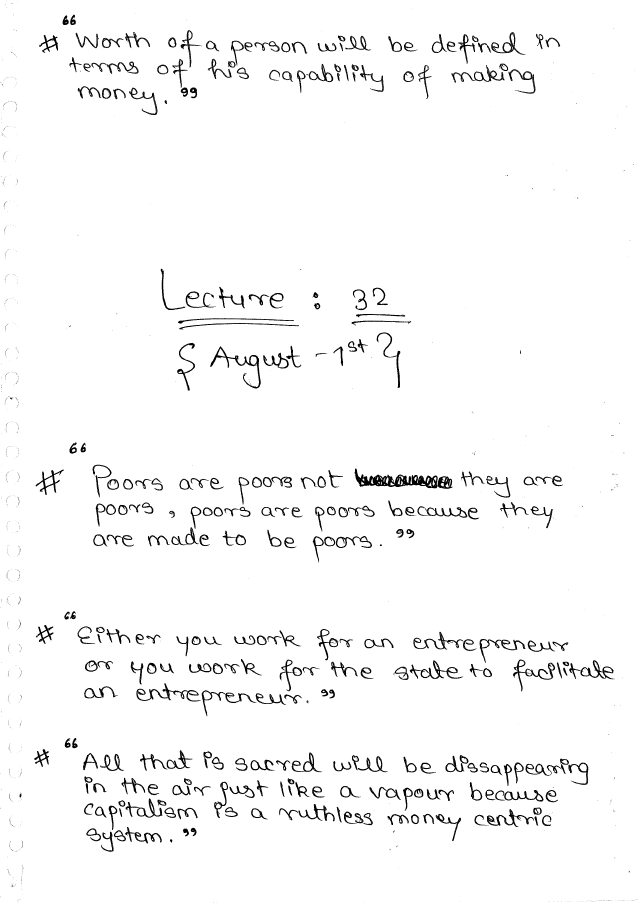 # “Worth of a person will be defined in
terms of his capability of making
money.”
Lecture : 32
{ August - 1st }
# “Poors are poors not they are
poors, poors are poors because they
are made to be poors.”
# “Either you work for an entrepreneur
or you work for the state to facilitate
an entrepreneur.”
# “All that is sacred will be dissappearing
in the air just like a vapour because
capitalism is a ruthless money centric
system.”